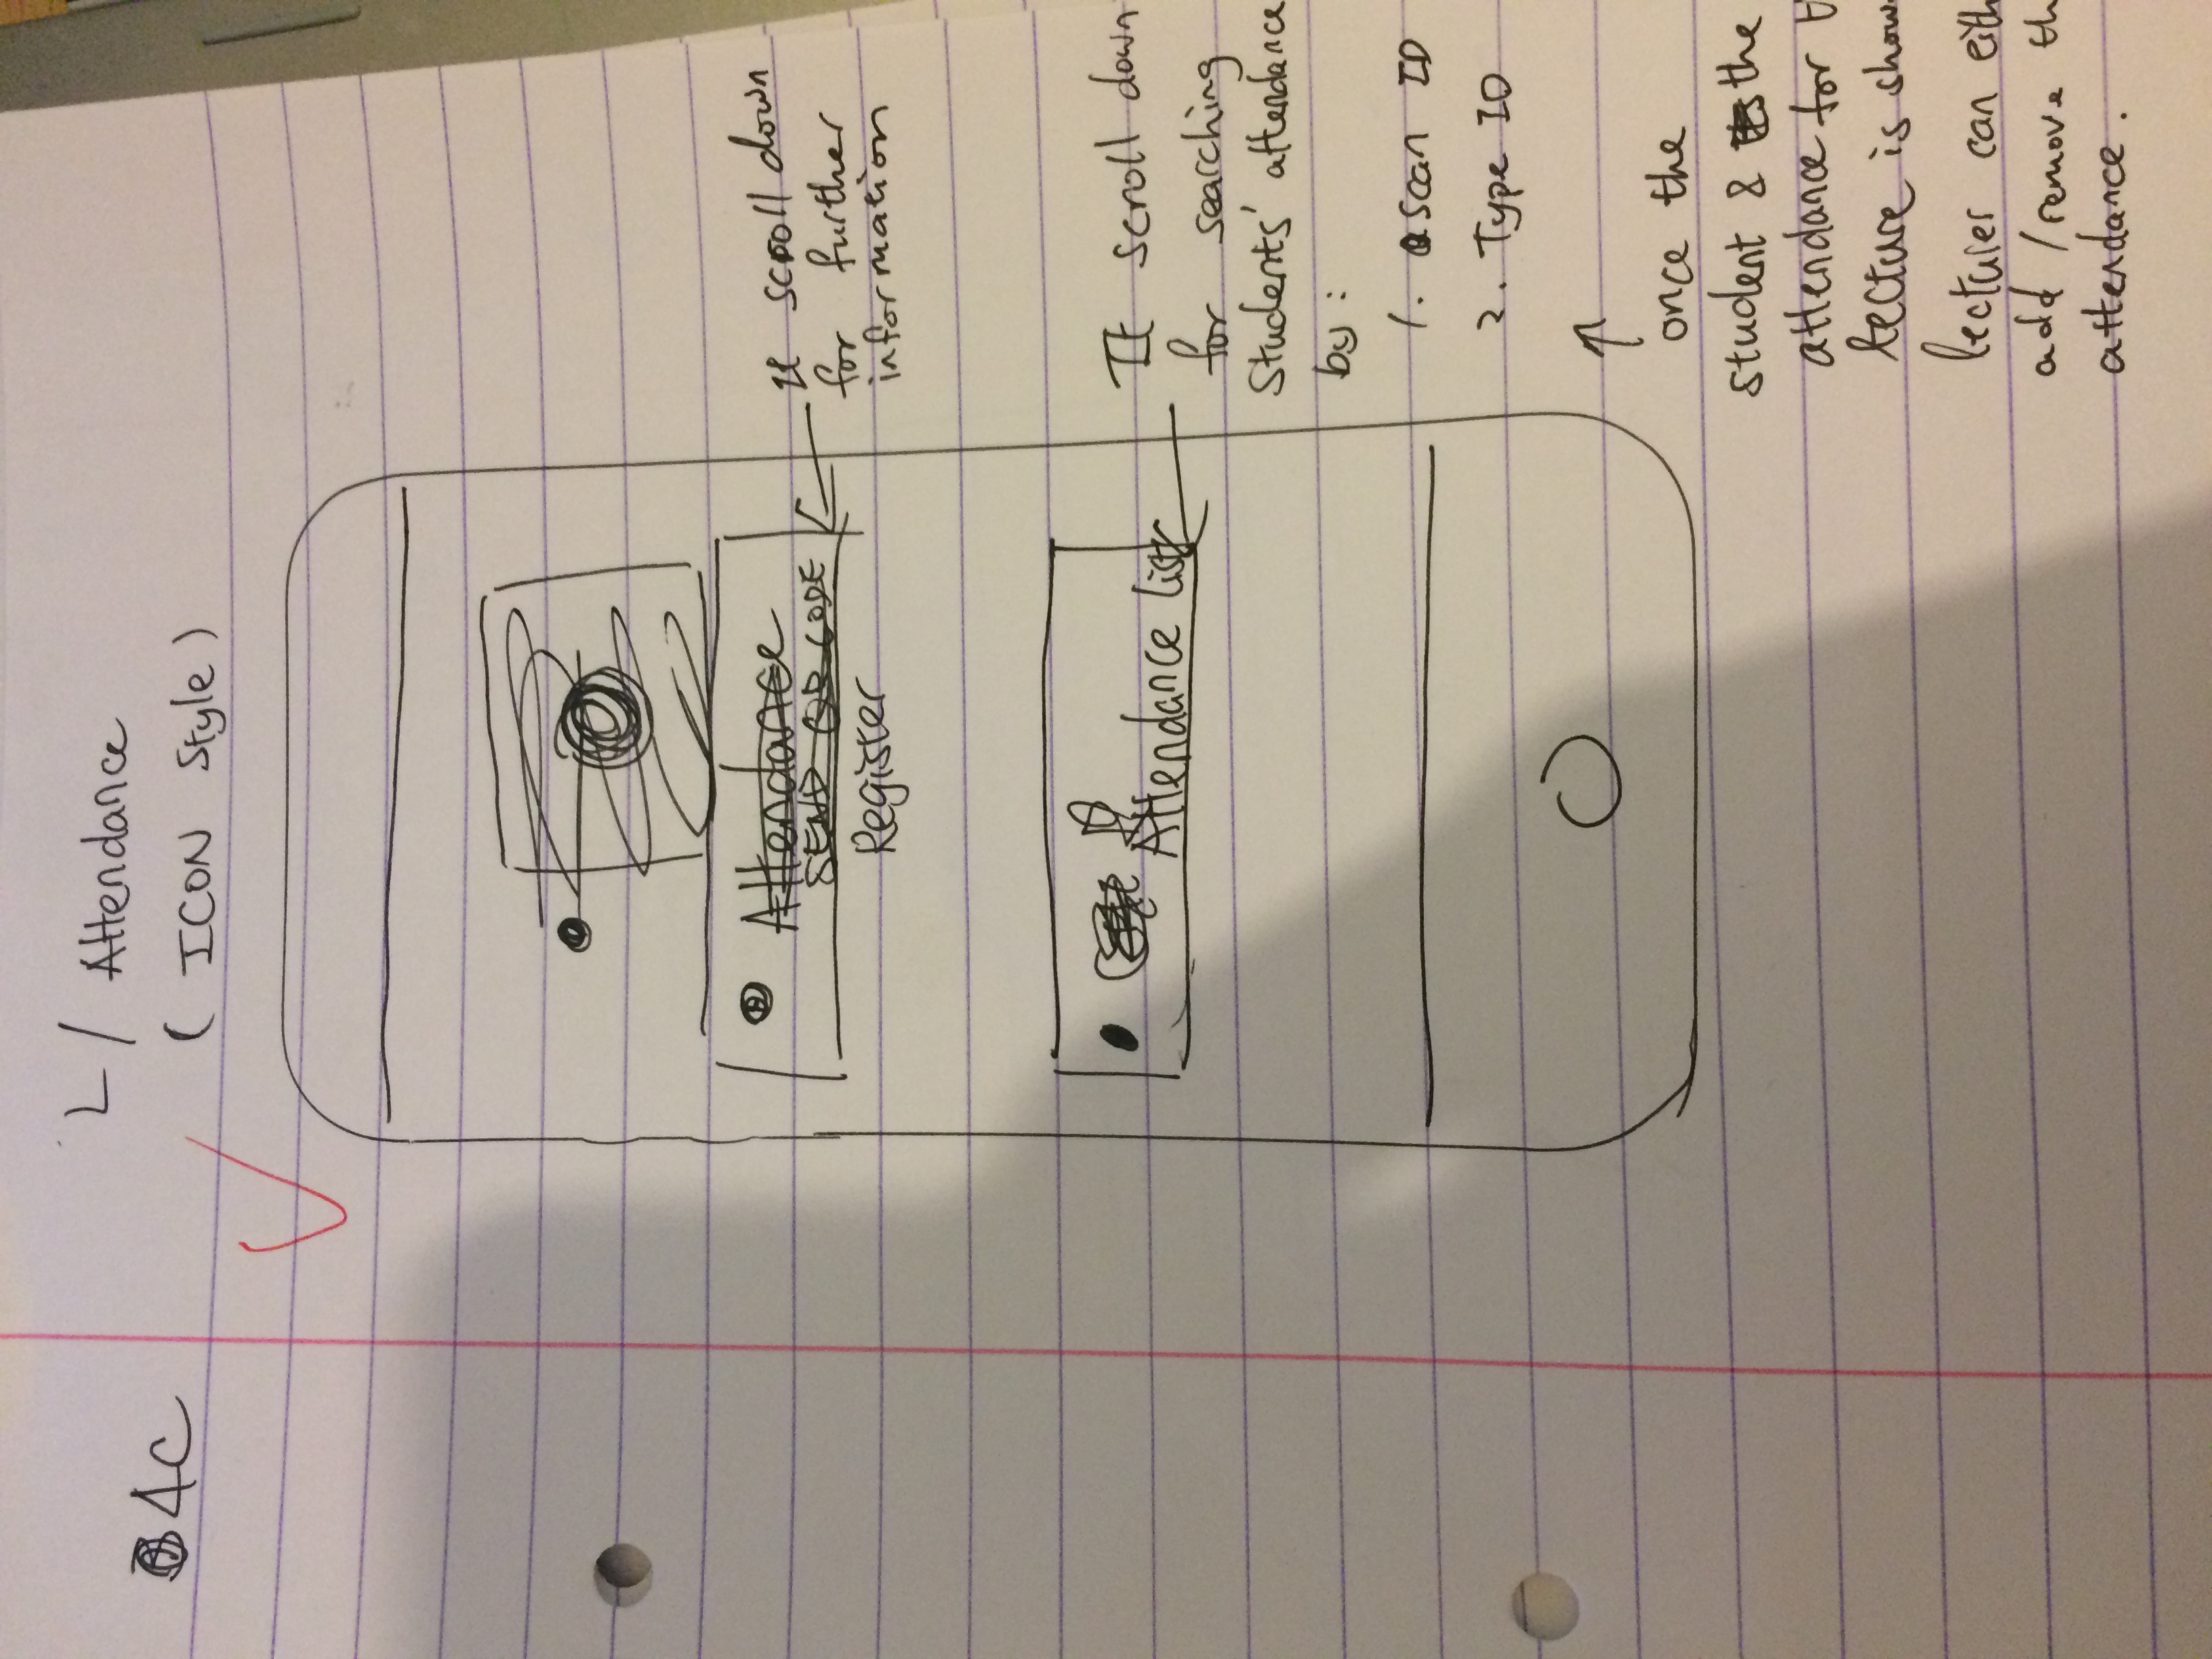 L / Attendance
4C
( ICON Style )
Attendance
SEND QR CODE
Register
It scroll down
for further
information
Attendance list
It scroll down
for searching
Students' attendance
by :
1. scan ID
2. Type ID
once the
student & the
attendance for
lecture is
lecturer can
add / remove
attendance.